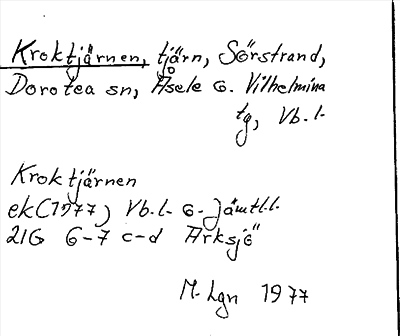 Kroktjärnen, tjärn, Sörstrand,
Dorotea sn, Åsele o. Vilhelmina
tg, Vb. l.
Kroktjärnen
ek (1977) Vb. l. o. Jämtl. l.
21G 6-7 c-d Arksjö
M. Lgn 1977